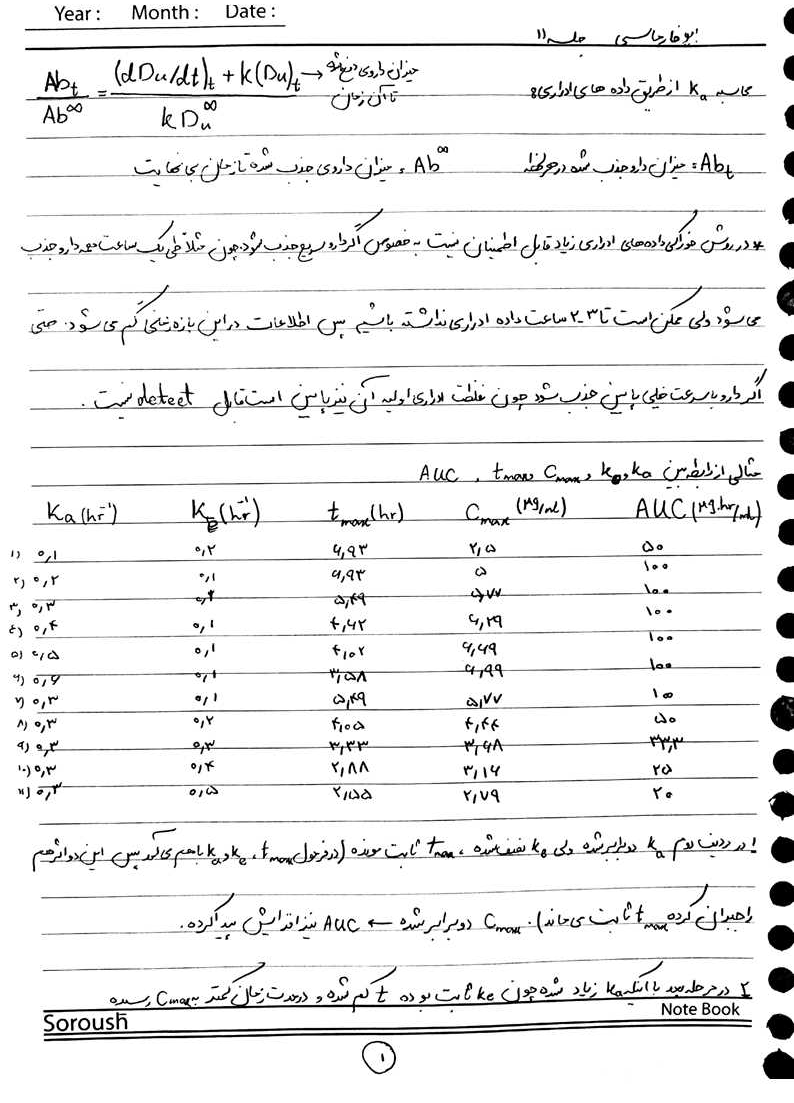 Year : Month : Date :
بیوفارماسی جلسه ۱۱
محاسبه ka از طریق داده های ادراری:
Abt / Ab∞ = ((dDu/dt)t + k(Du)t) / k Du∞ → میزان داروی دفع شده تا آن زمان
Abt = میزان دارو جذب شده در هر لحظه Ab∞ = میزان داروی جذب شده تا زمان بی نهایت
* در روش خوراکی داده‌های ادراری زیاد قابل اطمینان نیست به خصوص اگر دارو سریع جذب شود. چون مثلاً طی یک ساعت همه دارو جذب
می شود ولی ممکن است تا ۳-۲ ساعت داده ادراری نداشته باشیم پس اطلاعات در این بازه زمانی گم می شود. حتی
اگر دارو با سرعت خیلی پایین جذب شود چون غلظت ادراری اولیه آن نیز پایین است قابل detect نیست.
مثالی از رابطه بین ka و ke و Cmax و tmax و AUC
Ka (hr⁻¹) KE (hr⁻¹) tmax (hr) Cmax (μg/ml) AUC (μg.hr/ml)
۱) ۰,۱ ۰,۲ ۶,۹۳ ۲,۵ ۵۰
۲) ۰,۲ ۰,۱ ۶,۹۳ ۵ ۱۰۰
۳) ۰,۳ ۰,۱ ۵,۴۹ ۵,۷۷ ۱۰۰
۴) ۰,۴ ۰,۱ ۴,۶۲ ۶,۲۹ ۱۰۰
۵) ۰,۵ ۰,۱ ۴,۰۲ ۶,۶۹ ۱۰۰
۶) ۰,۶ ۰,۱ ۳,۵۸ ۶,۹۹ ۱۰۰
۷) ۰,۳ ۰,۱ ۵,۴۹ ۵,۷۷ ۱۰۰
۸) ۰,۳ ۰,۲ ۴,۰۵ ۴,۴۴ ۵۰
۹) ۰,۳ ۰,۳ ۳,۳۳ ۳,۶۸ ۳۳,۳
۱۰) ۰,۳ ۰,۴ ۲,۸۸ ۳,۱۶ ۲۵
۱۱) ۰,۳ ۰,۵ ۲,۵۵ ۲,۷۹ ۲۰
۱ در ردیف دوم ka دوبرابر شده ولی ke نصف شده، tmax ثابت مونده (در فرمول tmax، ke و ka باهم می آید پس این دو اثر هم
را جبران کرده tmax ثابت می ماند). Cmax دوبرابر شده ← AUC نیز افزایش پیدا کرده.
۲ در مرحله بعد با اینکه ka زیاد شده چون ke ثابت بوده t کم شده و در مدت زمان کمتر به Cmax رسیده
Soroush Note Book
۱